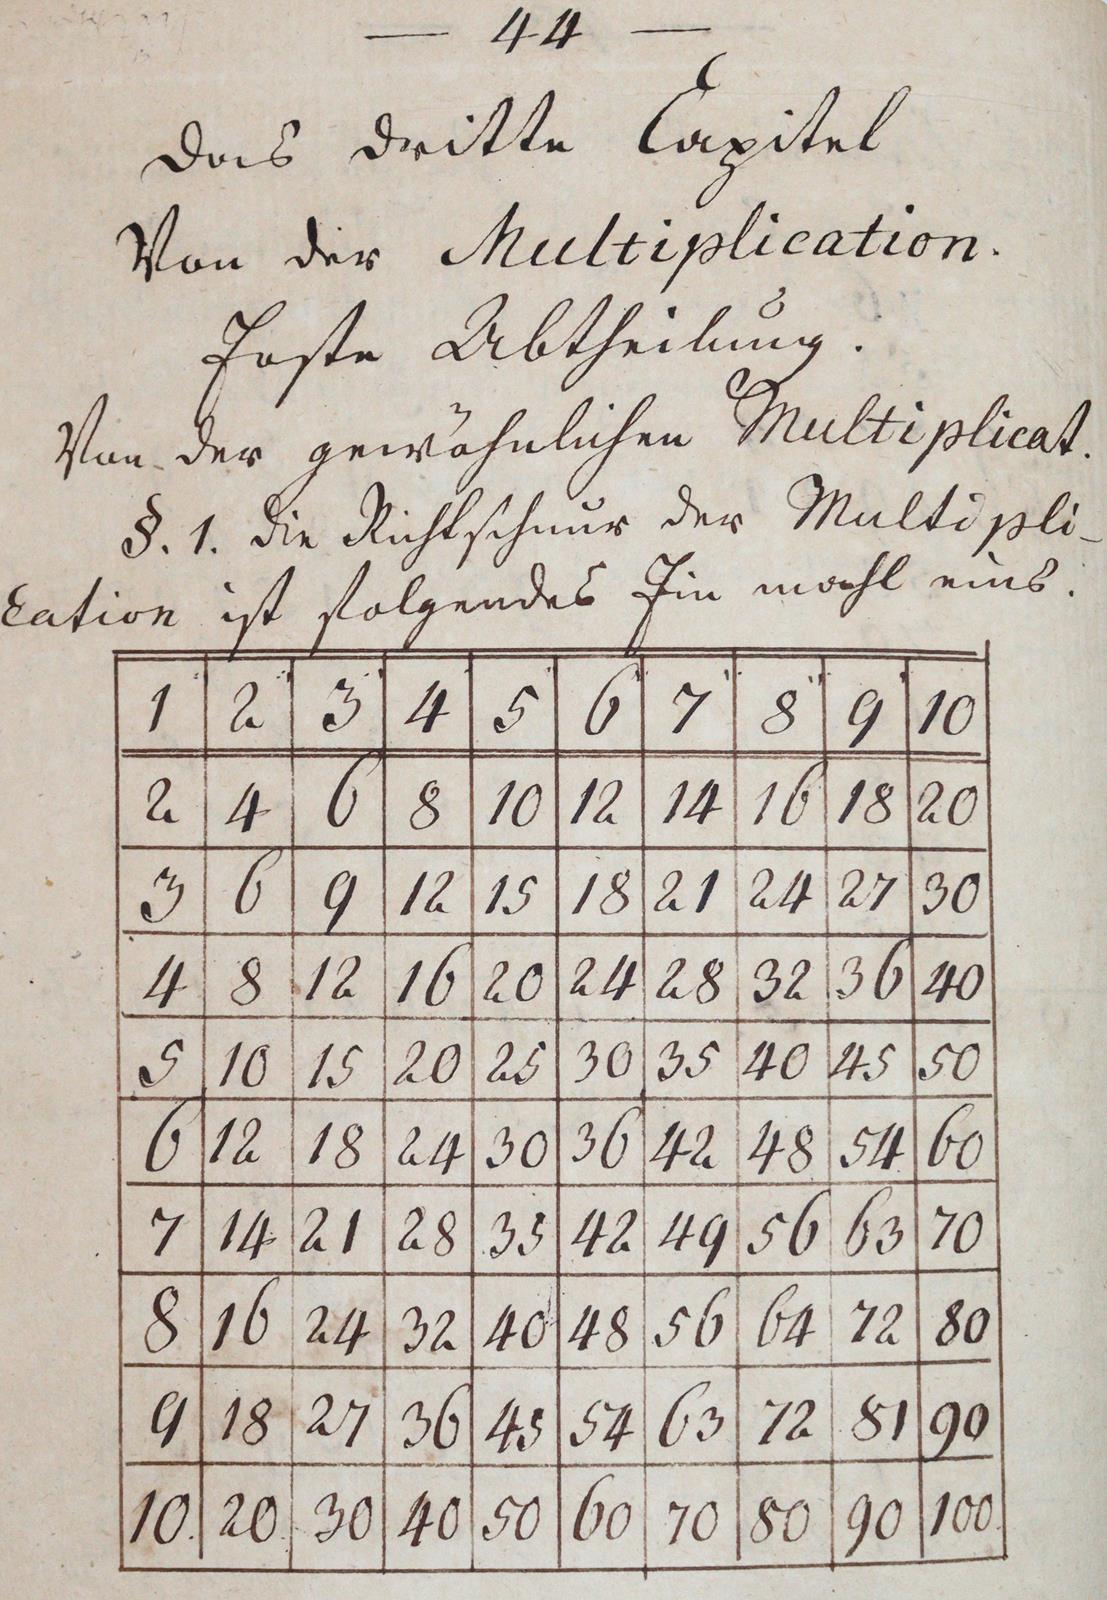 — 44 —
Das dritte Capitel
Von der Multiplication.
Erste Abtheilung.
Von der gewöhnlichen Multiplicat.
§. 1. die Richtschnur der Multipli-
cation ist folgendes Ein mahl eins.
1 2 3 4 5 6 7 8 9 10
2 4 6 8 10 12 14 16 18 20
3 6 9 12 15 18 21 24 27 30
4 8 12 16 20 24 28 32 36 40
5 10 15 20 25 30 35 40 45 50
6 12 18 24 30 36 42 48 54 60
7 14 21 28 35 42 49 56 63 70
8 16 24 32 40 48 56 64 72 80
9 18 27 36 45 54 63 72 81 90
10. 20 30 40 50 60 70 80 90 100